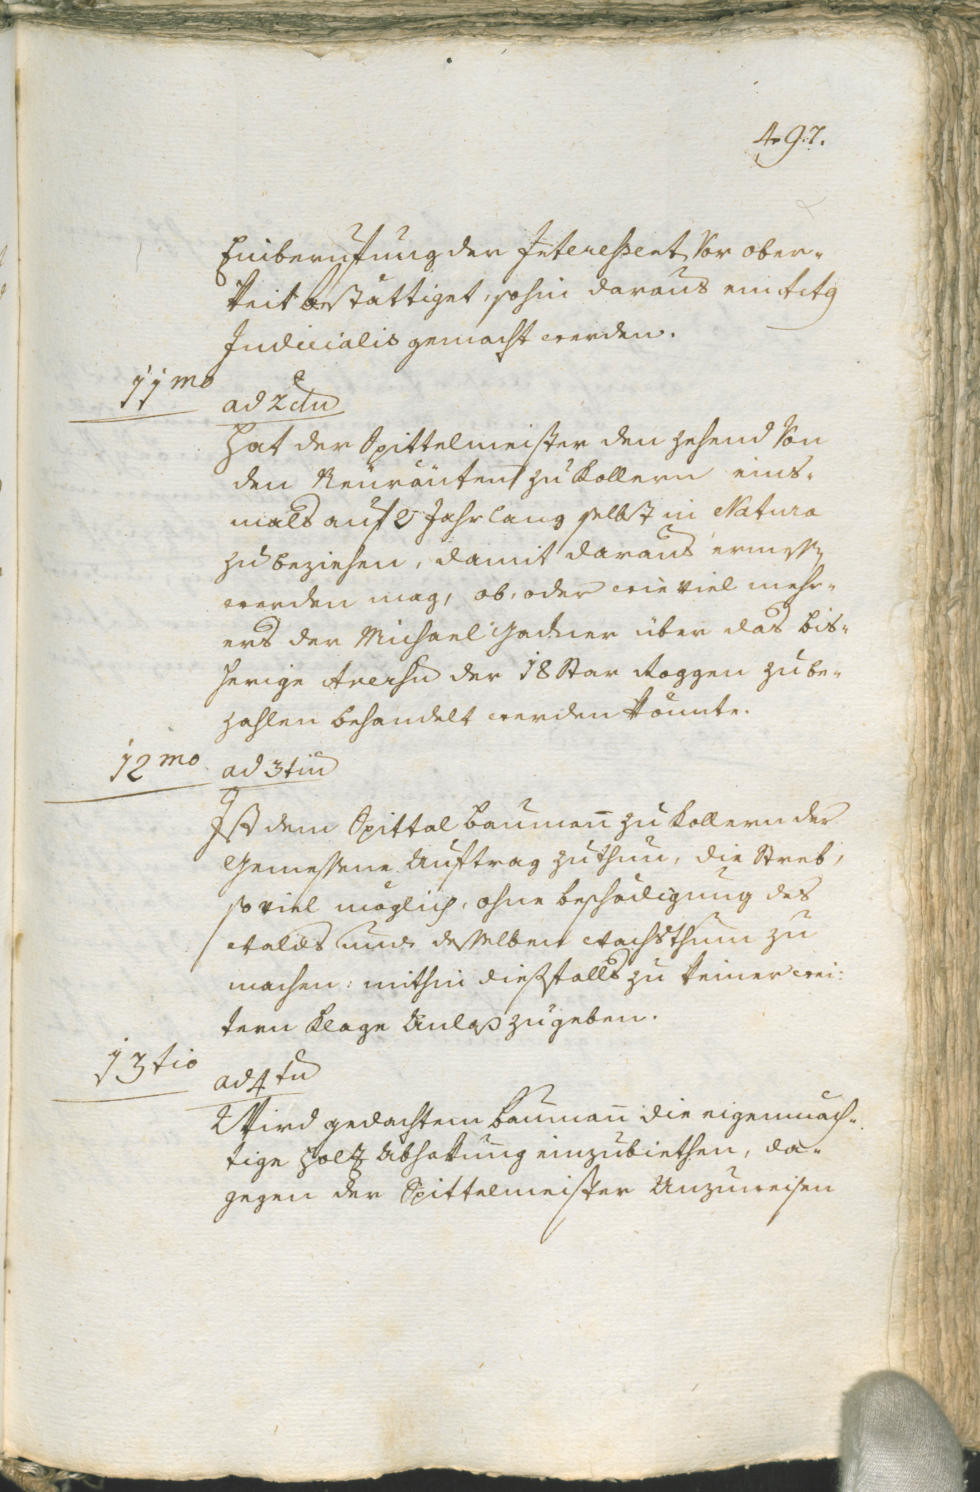 497.
Einberuffung der Interessent, Vor ober-
keit bestättiget, sohin daraus ein Actg
Judicialis gemacht werden.
11mo
ad 2dm
Hat der Spittelmeister den Zehend Von
den Neuräuten zu Kollern eins-
mals auf 2 Jahr lang selbst in Natura
zu beziehen, damit daraus ermess
werden mag, ob, oder wie viel mehr-
ers der Michael Gadner über das bis-
herige Aversum der 18 Star Roggen zu be-
zahlen behandelt werden könnte.
12mo
ad 3tiu
Ist dem Spittal Baumann zu Kollern der
Gemessene Auftrag zu thun, die Streb,
so viel möglich, ohne beschädigung des
Walds und desselben Wachsthum zu
machen: mithin diesfalls zu keiner wei:
tern Klage Anlaß zu geben.
13tio
ad 4tu
Wird gedachtem Baumann die eigenmäch-
tige Holtz Abhakung einzubiethen, da-
gegen der Spittelmeister Anzuweisen